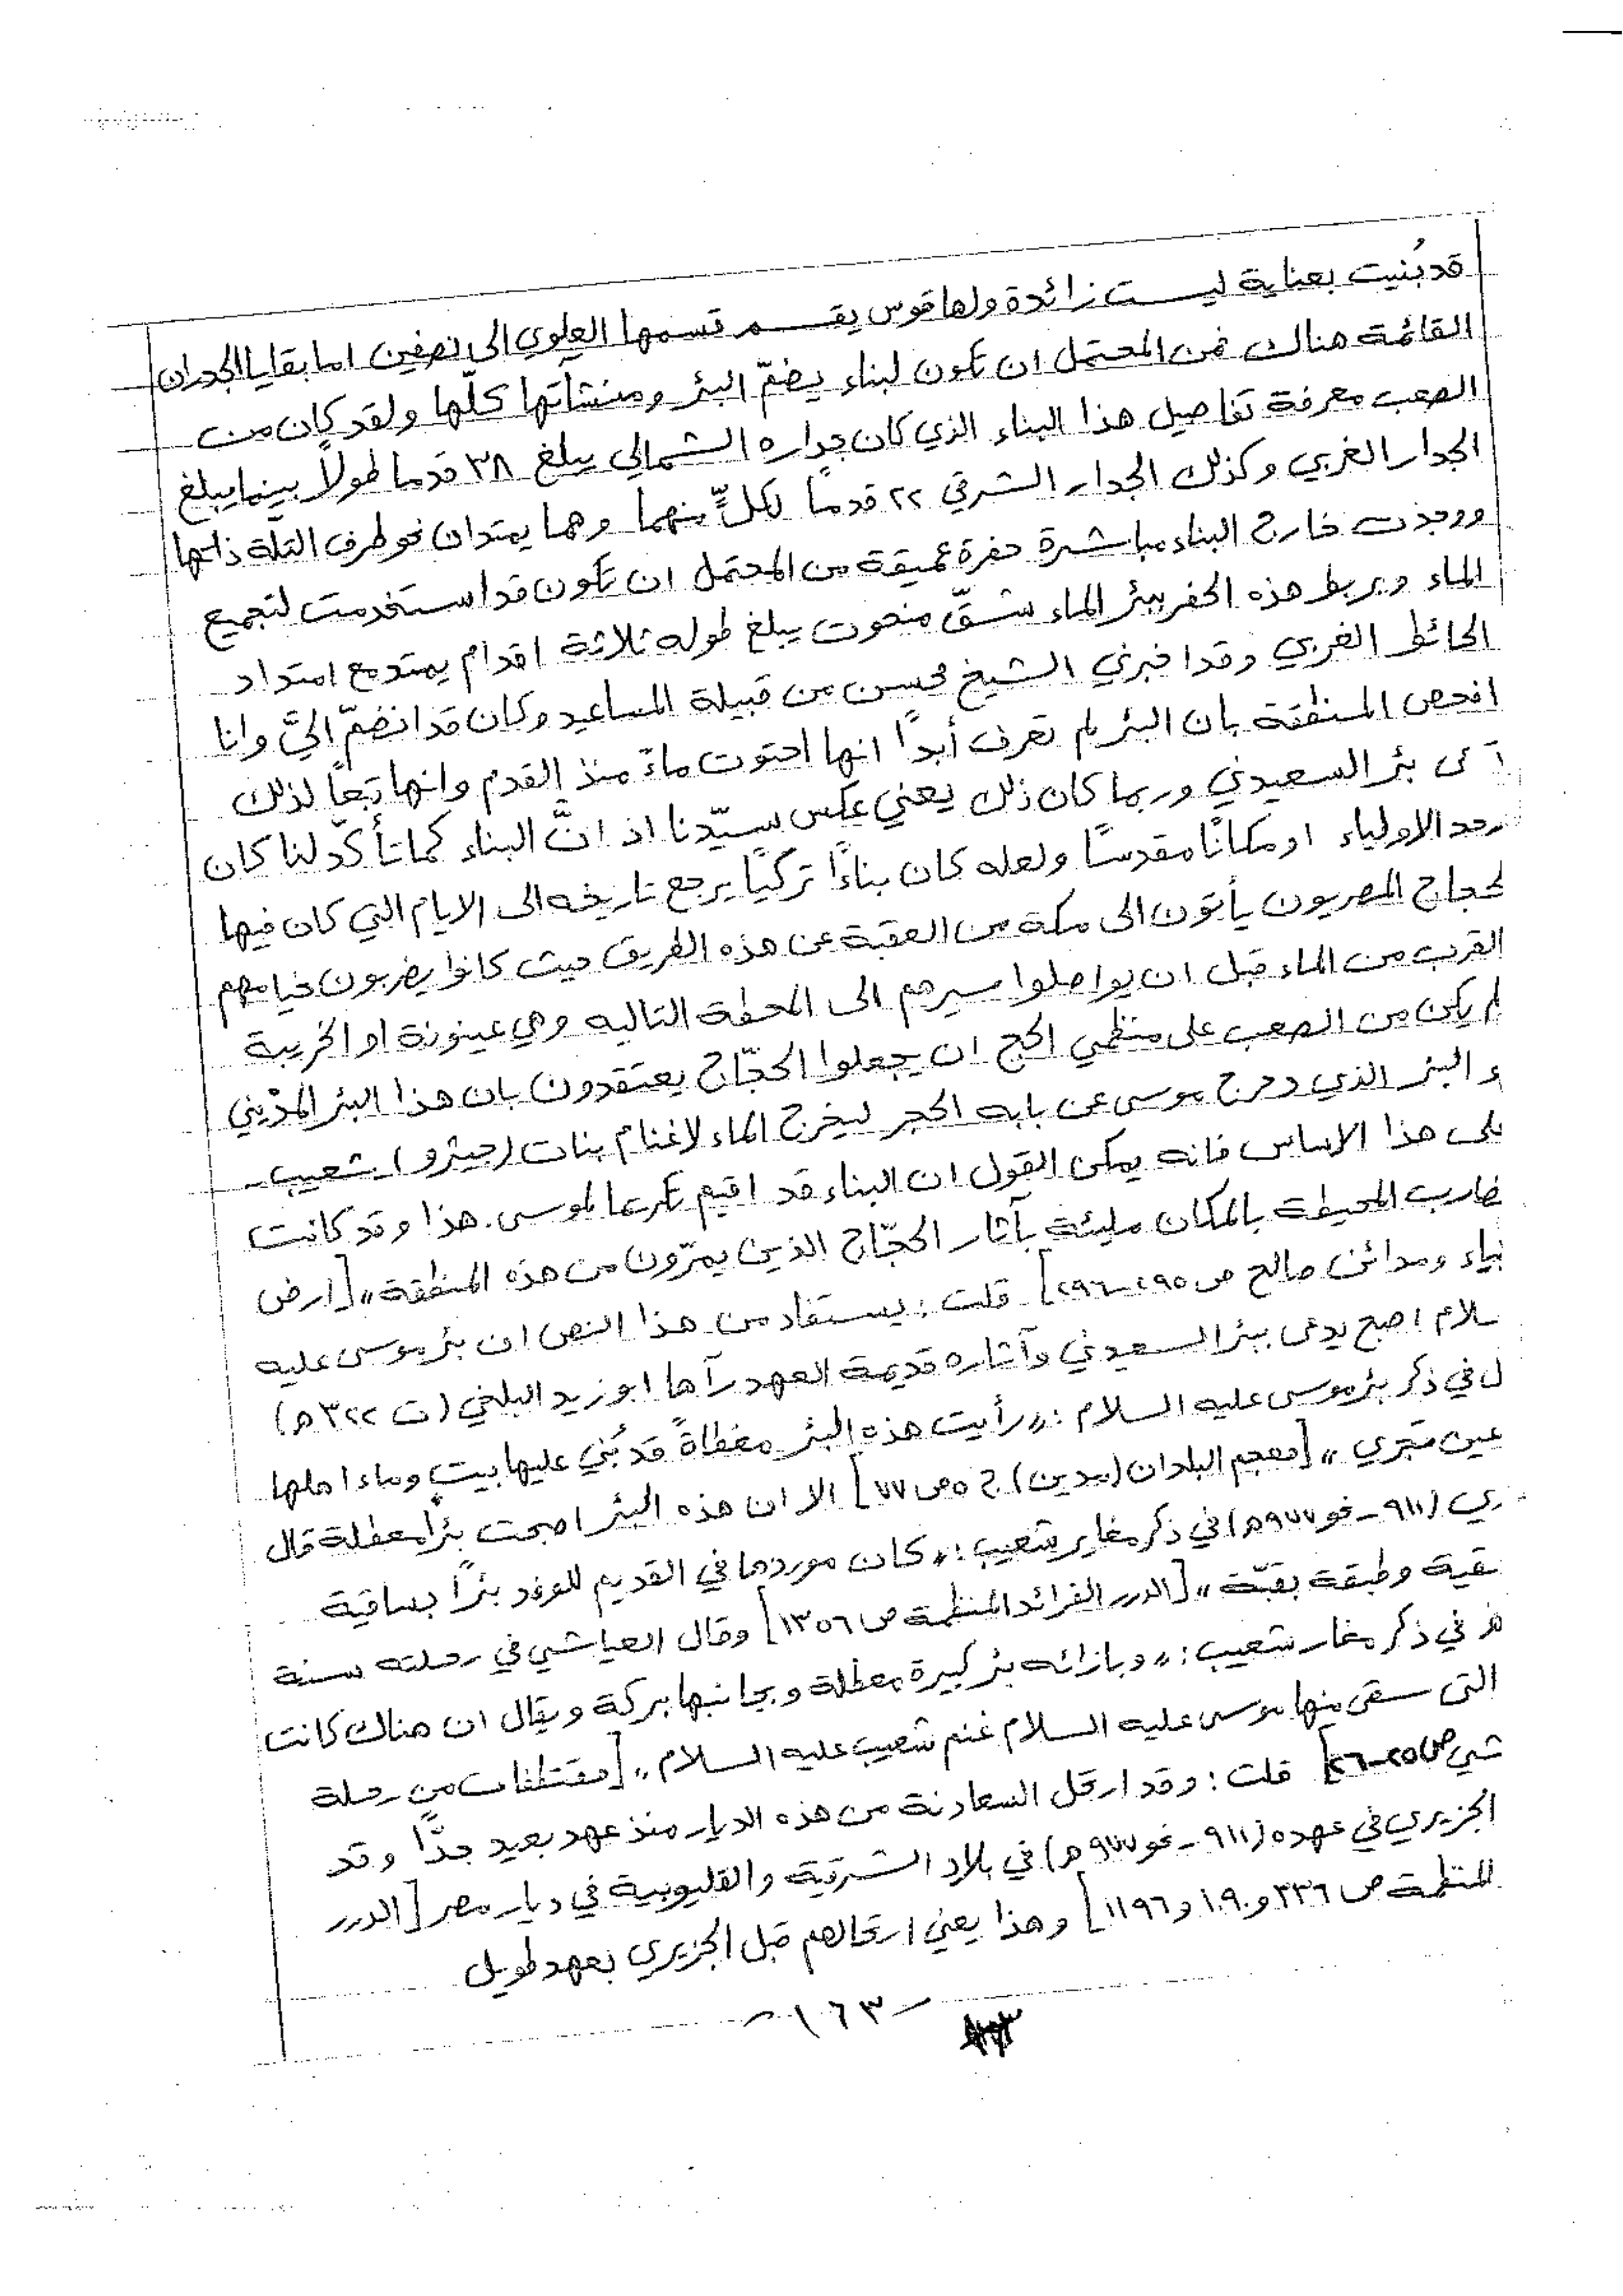 قد بُنيت بعناية ليست زائدة ولها قوس يقسم قسمها العلوي الى نصفين اما بقايا الجدران
القائمة هناك فمن المحتمل ان تكون لبناء يضمّ البئر ومنشآتها كلّها ولقد كان من
الصعب معرفة تفاصيل هذا البناء الذي كان جداره الشمالي يبلغ ٣٨ قدما طولاً بينما يبلغ
الجدار الغربي وكذلك الجدار الشرقي ٢٢ قدماً لكلٍّ منهما وهما يمتدان نحو طرف التلّة ذاتها
ووجدت خارج البناء مباشرة حفرة عميقة من المحتمل ان تكون قد استخدمت لتجميع
الماء ويربط هذه الحفر ببئر الماء شقّ منحوت يبلغ طوله ثلاثة اقدام يمتد مع امتداد
الحائط الغربي وقد اخبرني الشيخ محسن من قبيلة المساعيد وكان قد انضمّ اليَّ وانا
افحص المنطقة بان البئر لم تعرف أبداً انها احتوت ماءً منذ القدم وانها تبعاً لذلك
بئر السعيدني وربما كان ذلك يعني عكس سيّدنا اذ انَّ البناء كما تأكّد لنا كان
الاولياء او مكانًا مقدسًا ولعله كان بناءًا تركيًا يرجع تاريخه الى الايام التي كان فيها
لحجاج المصريون يأتون الى مكة من العقبة عن هذه الطريق حيث كانوا يضربون خيامهم
القرب من الماء قبل ان يواصلوا سيرهم الى المحطة التاليه وهي عينونة او الخريبة
لم يكن من الصعب على منظمي الحج ان يجعلوا الحجّاج يعتقدون بان هذا البئر المدْيني
و البئر الذي دحرج موسى عن بابه الحجر ليخرج الماء لاغنام بنات (جيثرو) شعيب -
على هذا الاساس فانه يمكن القول ان البناء قد اقيم تكريما لموسى. هذا وقد كانت
ضارب المحيطة بالمكان مليئة بآثار الحجّاج الذين يمرّون من هذه المنطقة» [ارض
نبياء ومدائن صالح ص ٢٩٥-٢٩٦] قلت: يستفاد من هذا النص ان بئر موسى عليه
سلام اصبح يدعى ببئر السعيدني وآثاره قديمة العهد رآها ابو زيد البلخي (ت ٣٢٢ هـ)
ل في ذكر بئر موسى عليه السلام: «رأيت هذه البئر مغطاةً قد بُني عليها بيت وماء اهلها
عين تجري» [معجم البلدان (مدين) ج ٥ ص ٧٧] الا ان هذه البئر اصبحت بئراً معطلة قال
ري (٩١١ - نحو ٩٧٧ هـ) في ذكر مغاير شعيب: «كان موردها في القديم للوفد بئرًا بساقية
سقية وطبقة بقبّة» [الدرر الفرائد المنظمة ص ١٣٥٦] وقال العياشي في رحلته سنة
في ذكر مغار شعيب: «وبازائه بئر كبيرة معطلة وبجانبها بركة ويقال ان هناك كانت
التى سقى منها موسى عليه السلام غنم شعيب عليه السلام» [مقتطفات من رحلة
شي ص ٢٥-٢٦] قلت: وقد ارتحل السعادنة من هذه الديار منذ عهد بعيد جدًّا وقد
الجزيري في عهده (٩١١ - نحو ٩٧٧ هـ) في بلاد الشرقية والقليوبية في ديار مصر [الدرر
المنظمة ص ٣٣٦ و١٠٩٠ و١١٩٦] وهذا يعني ارتحالهم قبل الجزيري بعهد طويل
- ١٦٣ -